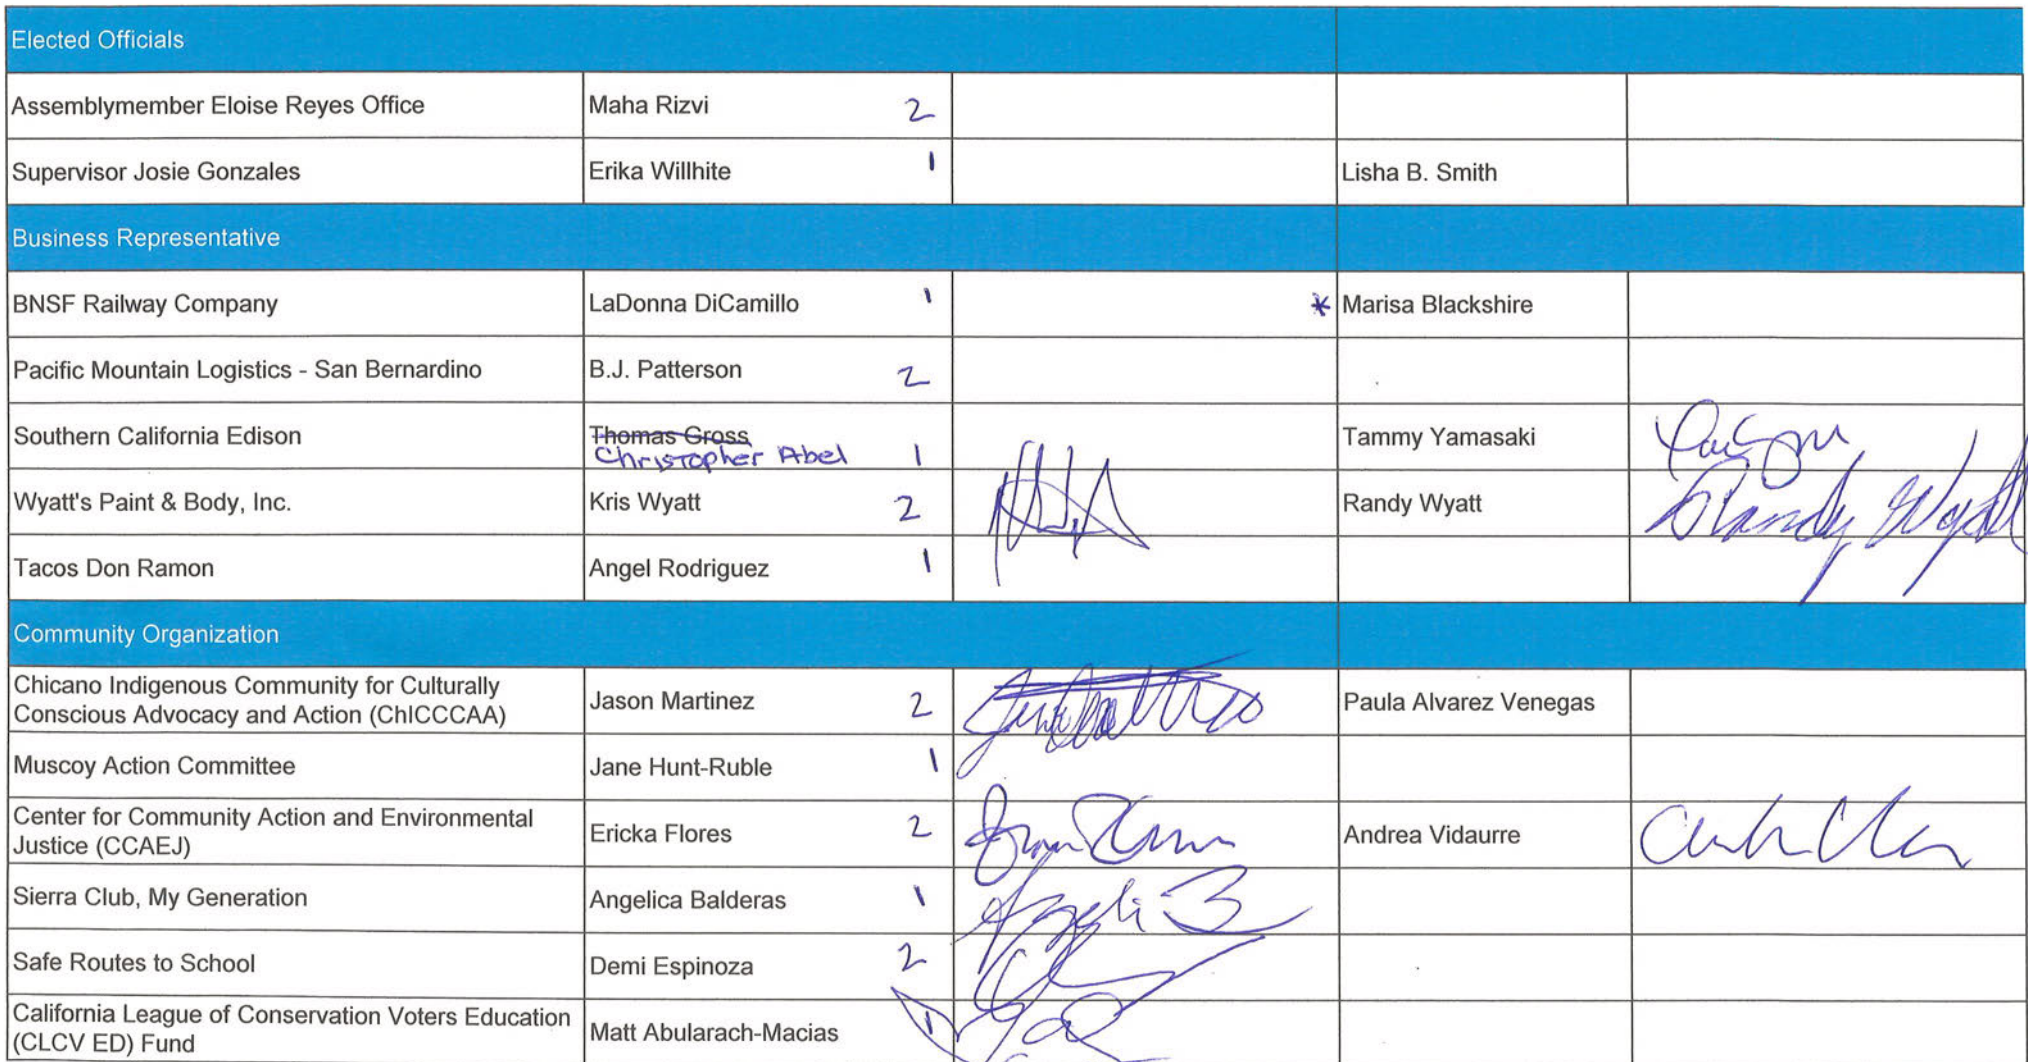 Elected Officials
Assemblymember Eloise Reyes Office Maha Rizvi 2
Supervisor Josie Gonzales Erika Willhite 1 Lisha B. Smith
Business Representative
BNSF Railway Company LaDonna DiCamillo 1 * Marisa Blackshire
Pacific Mountain Logistics - San Bernardino B.J. Patterson 2
Southern California Edison Thomas Gross Tammy Yamasaki
Christopher Abel 1
Wyatt's Paint & Body, Inc. Kris Wyatt 2 Randy Wyatt Randy Wyatt
Tacos Don Ramon Angel Rodriguez 1
Community Organization
Chicano Indigenous Community for Culturally
Conscious Advocacy and Action (ChICCCAA) Jason Martinez 2 Paula Alvarez Venegas
Muscoy Action Committee Jane Hunt-Ruble 1
Center for Community Action and Environmental
Justice (CCAEJ) Ericka Flores 2 Andrea Vidaurre
Sierra Club, My Generation Angelica Balderas 1
Safe Routes to School Demi Espinoza 2
California League of Conservation Voters Education
(CLCV ED) Fund Matt Abularach-Macias 1